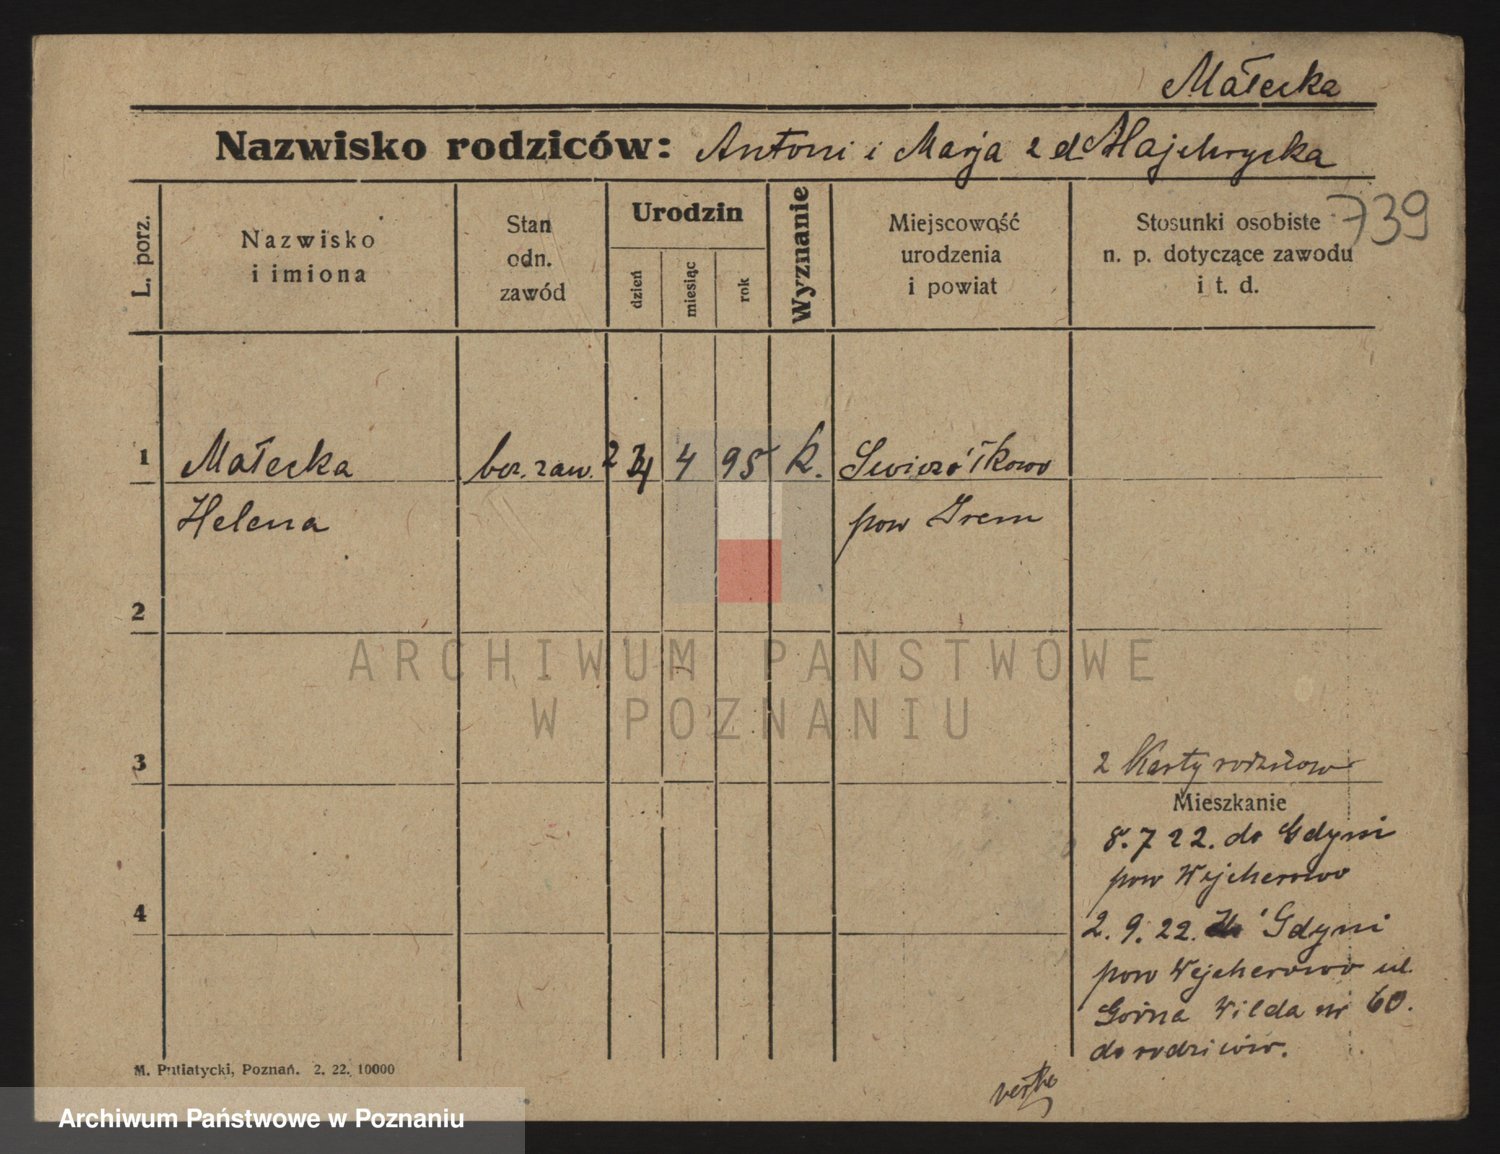 Małecka
Nazwisko rodziców: Antoni i Marja z d Majchrycka
739
L. porz.
Nazwisko
i imiona
Stan
odn.
zawód
Urodzin
dzień
miesiąc
rok
Wyznanie
Miejscowość
urodzenia
i powiat
Stosunki osobiste
n. p. dotyczące zawodu
i t. d.
1 Małecka bez. zaw. 4 95 k.
Helena pow Śrem
2
3
z Karty rodziców
Mieszkanie
8.7 22. do Gdyni
pow Wejcherowo
4
2. 9. 22. Gdyni
pow Wejcherowo ul.
Górna Wilda nr 60.
do rodziców.
M. Putiatycki, Poznań. 2. 22. 10000
ARCHIWUM PAŃSTWOWE
W POZNANIU
Archiwum Państwowe w Poznaniu